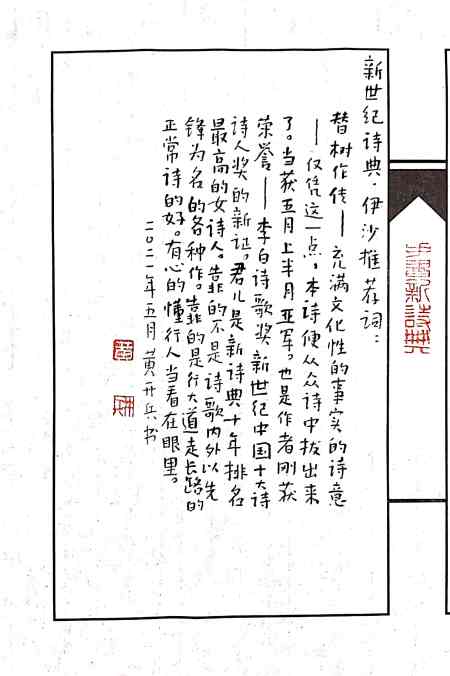 新世纪诗典·伊沙推荐词：
替树作传——充满文化性的事实的诗意
——仅凭这一点，本诗便从众诗中拔出来
了。当获五月上半月亚军。也是作者刚获
荣誉——李白诗歌奖新世纪中国十大诗
诗人奖的新证。君儿是新诗典十年排名
最高的女诗人。靠的不是诗歌内外以先
锋为名的各种作。靠的是行大道走长路的
正常诗的好。有心的懂行人当看在眼里。
二〇二一年五月 黄开兵书